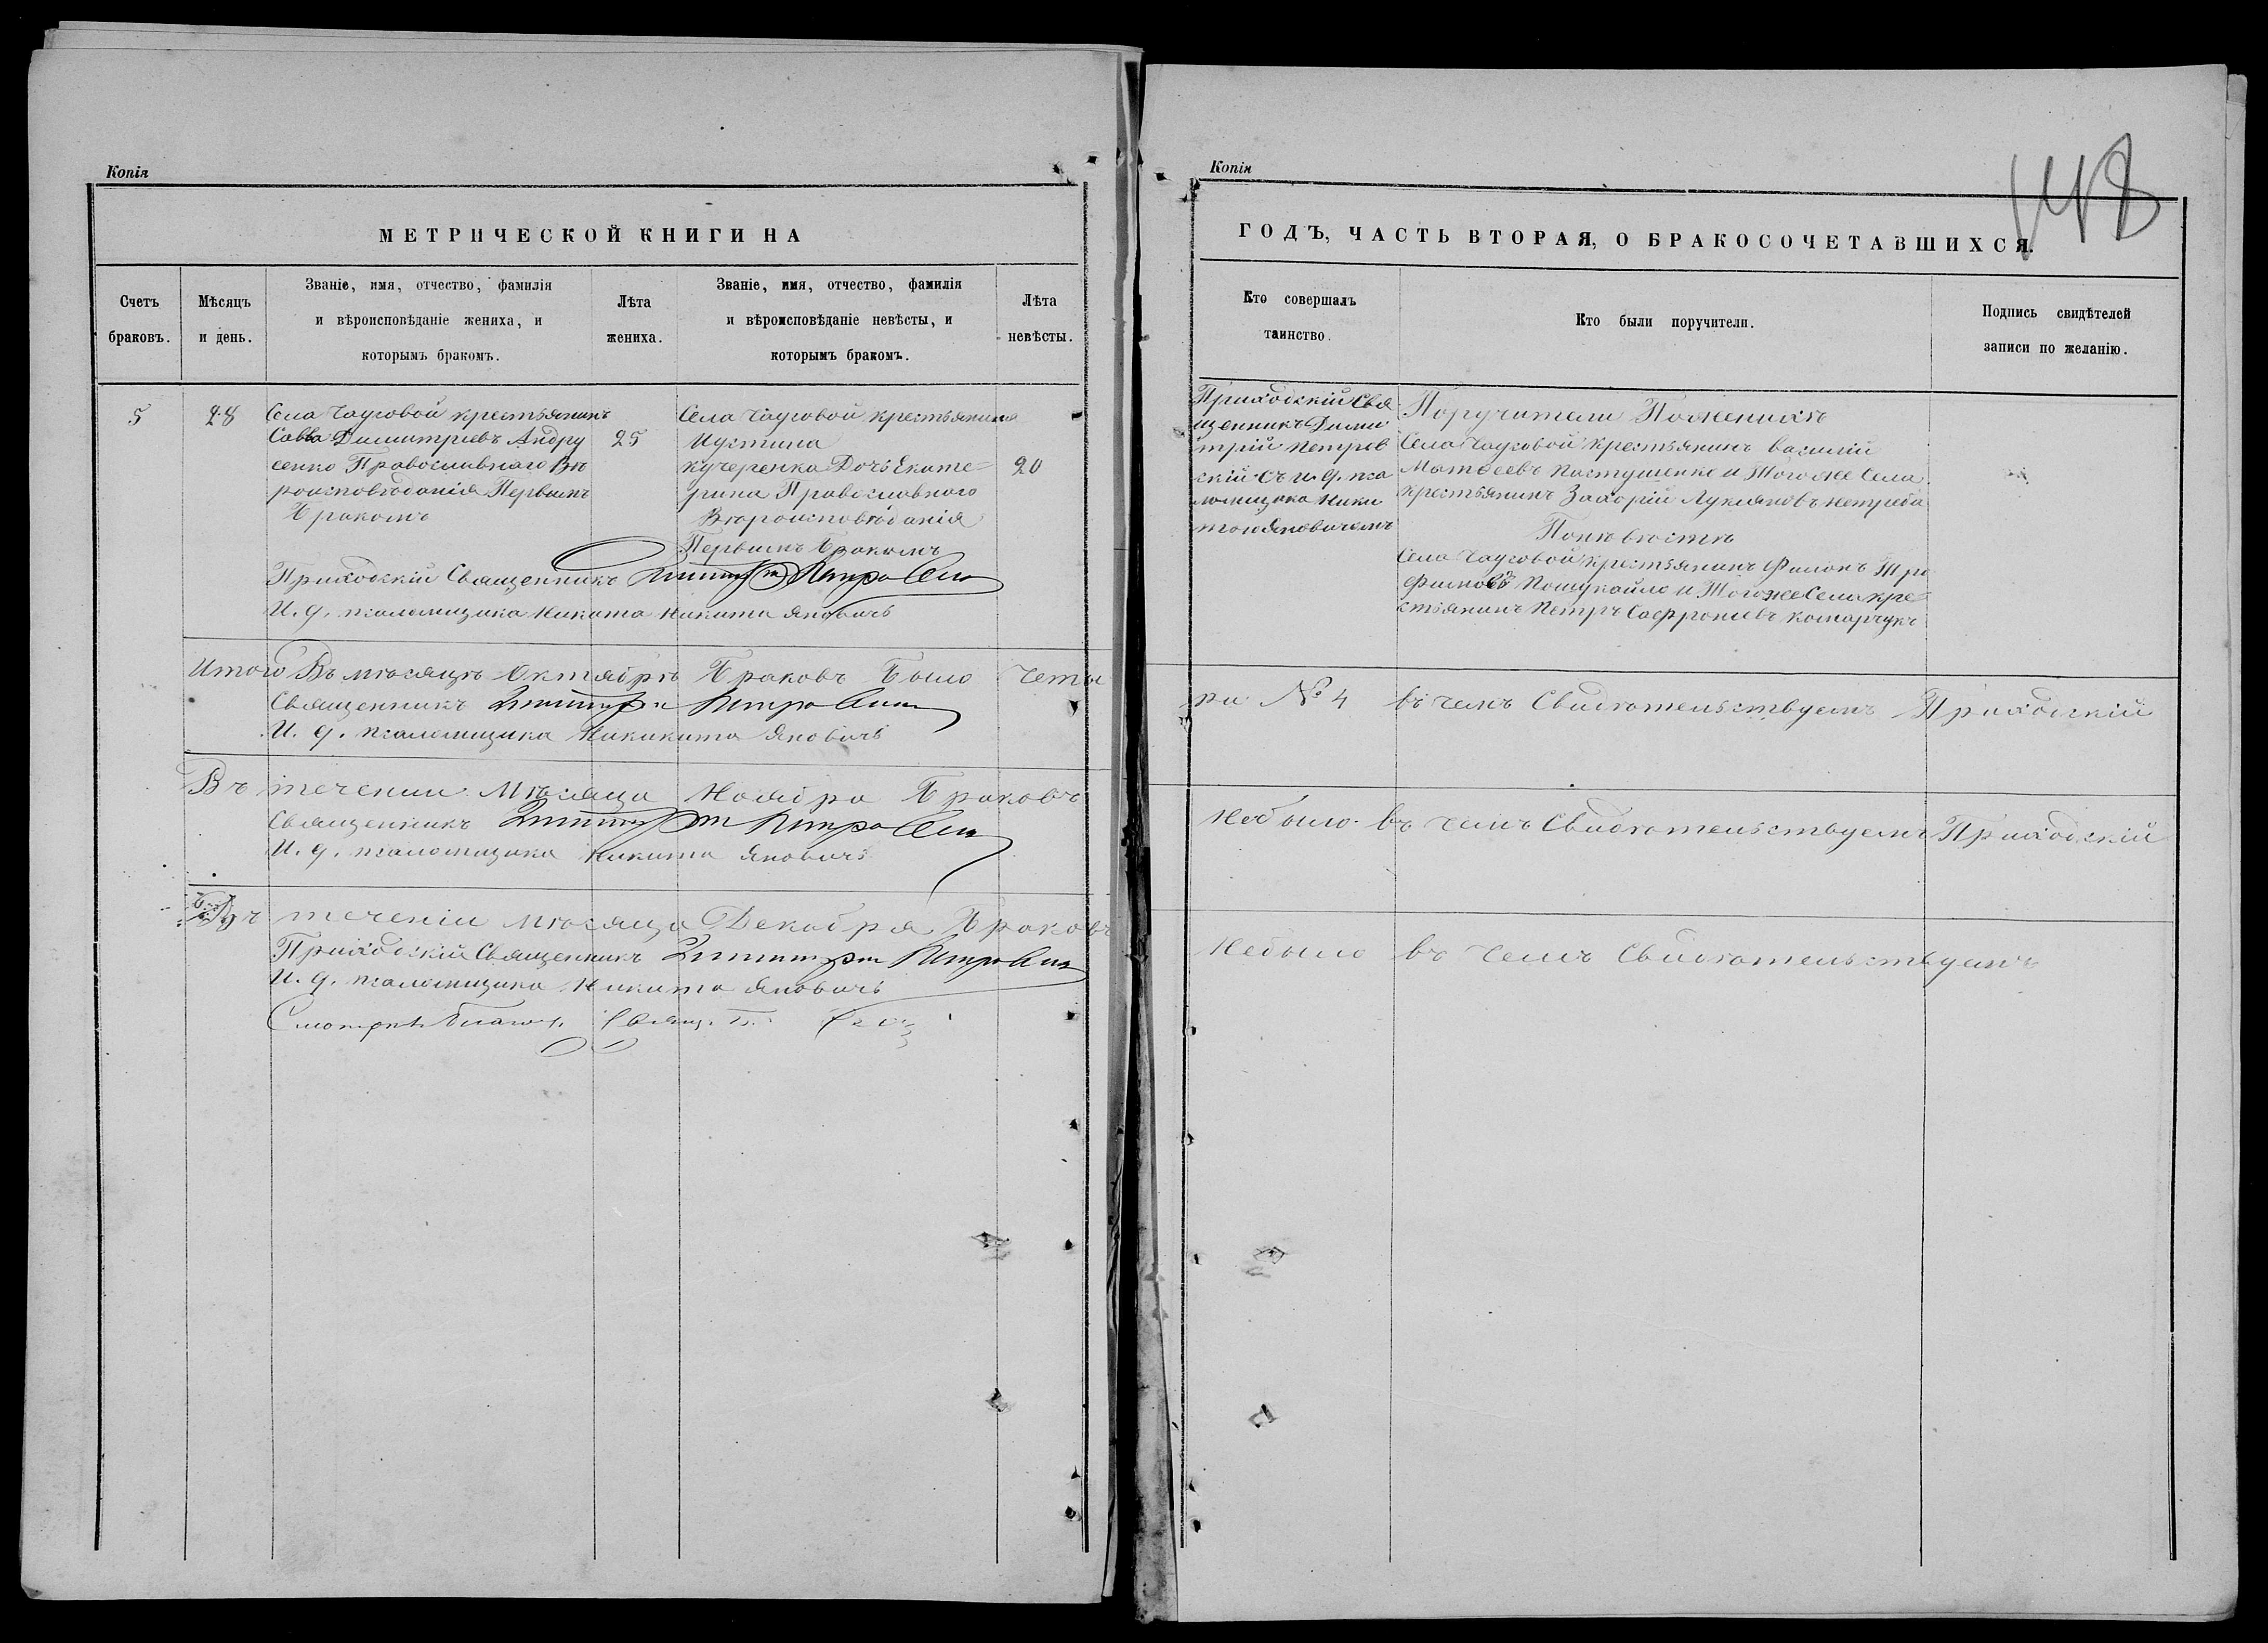 Копія
МЕТРИЧЕСКОЙ КНИГИ НА
Счетъ браковъ.
Мѣсяцъ и день.
Званіе, имя, отчество, фамилія и вѣроисповѣданіе жениха, и которымъ бракомъ.
Лѣта жениха.
Званіе, имя, отчество, фамилія и вѣроисповѣданіе невѣсты, и которымъ бракомъ.
Лѣта невѣсты.
5
28
Села Чаусовой крестьянинъ
Савва Димитріевъ Андру
сенко Православнаго Вѣ
роисповѣданія Первымъ
Бракомъ
25
Села Чаусовой крестьянина
Иустина
Кучеренка Дочь Екате=
рина Православнаго
Вѣроисповѣданія
Первымъ Бракомъ
20
Приходскій Священникъ Димитрій Петровскій
И. д. псаломщика Никита Никита Яновичъ
Итого Въ мѣсяцѣ Октябрѣ Браковъ Было Четы
Священникъ Димитрій Петровскій
И. д. псаломщика Никикита Яновичъ
Въ течении Мѣсяца Ноября Браковъ
Священникъ Димитрій Петровскій
И. д. псаломщика Никита Яновичъ
Въ теченіи мѣсяца Декабря Браковъ
Приходскій Священникъ Димитрій Петровскій
И. д. псаломщика Никита Яновичъ
Смотрѣлъ Благоч. Свящ.
Копія
148
ГОДЪ, ЧАСТЬ ВТОРАЯ, О БРАКОСОЧЕТАВШИХСЯ.
Кто совершалъ таинство.
Кто были поручители.
Подпись свидѣтелей записи по желанію.
Приходскій Свя
щенникъ Дими
трій Петров
скій Съ и. д. пса
ломщика Ники
тою Яновичемъ
Поручители По женихѣ
Села Чаусовой Крестьянинъ василій
Матвеевъ Пастушенко и Того же Села
Крестьянинъ Захорій Лукіяновъ Нетреба
По невѣстѣ
Села Чаусовой Крестьянинъ Филонъ Тро
фимовъ Пошукайло и Того же Села кре=
стьянинъ Петръ Софроніевъ Комарчукъ
ри № 4 въ чемъ Свидѣтельствуемъ Приходскій
Небыло въ чемъ Свидѣтельствуемъ Приходскій
Небыло въ чемъ Свидѣтельствуемъ